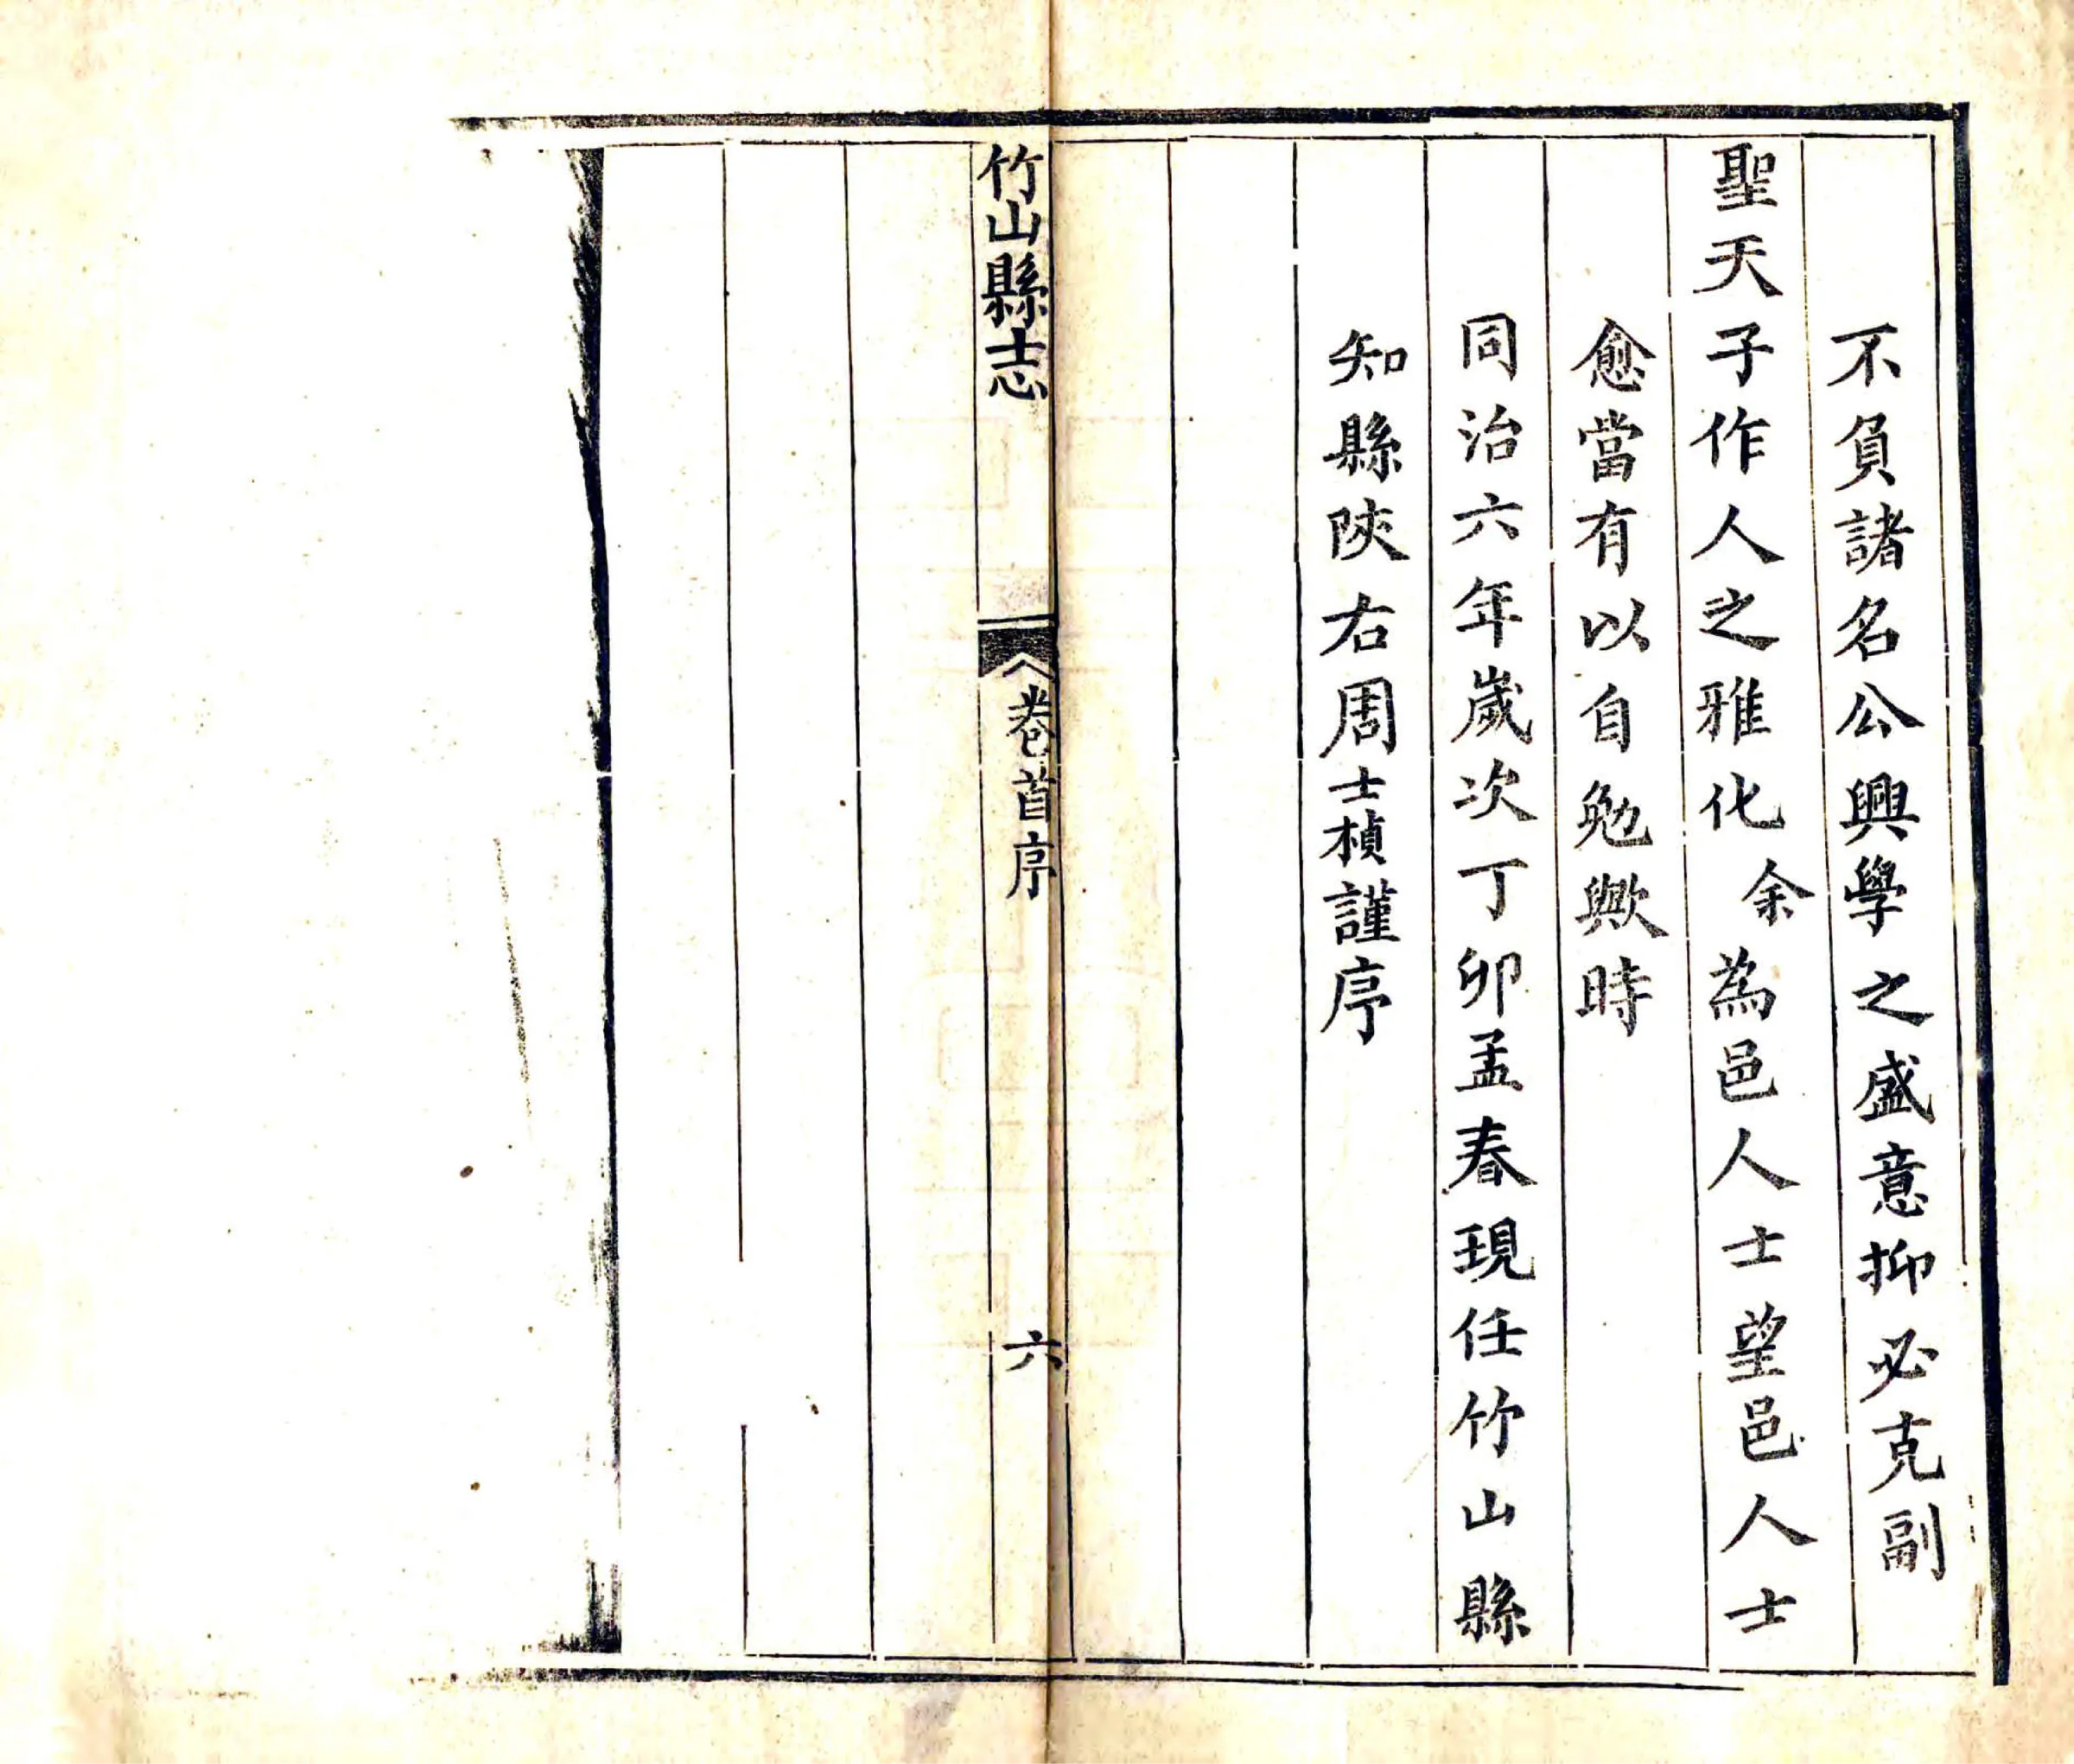 不負諸名公興學之盛意抑必克副
聖天子作人之雅化余為邑人士望邑人士
愈當有以自勉歟時
同治六年歲次丁卯孟春現任竹山縣
知縣陝右周士楨謹序
竹山縣志
卷首序
六